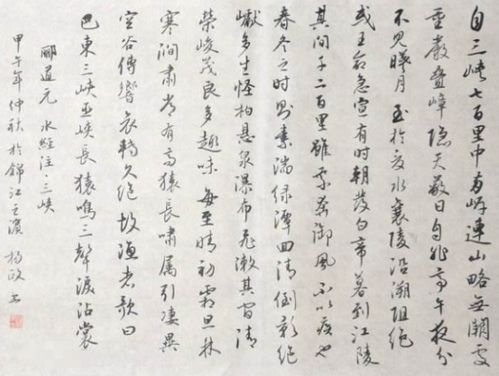 自三峡七百里中两岸連山略無闕處
重巖叠嶂隐天蔽日自非亭午夜分
不見曦月至於夏水襄陵沿溯阻绝
或王命急宣有时朝發白帝暮到江陵
其间千二百里雖乘奔御風不以疾也
春冬之时則素湍绿潭回清倒影绝
巘多生怪柏悬泉瀑布飛漱其间清
榮峻茂良多趣味每至晴初霜旦林
寒澗肅常有高猿長啸属引凄異
空谷傳響哀轉久绝故渔者歌曰
巴東三峡巫峡長猿鳴三聲淚沾裳
酈道元 水經注·三峡
甲午年仲秋於錦江之濱 楊政书